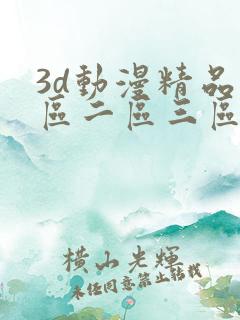 3d動漫精品
區二區三區
橫山光輝
未經同意禁止轉載